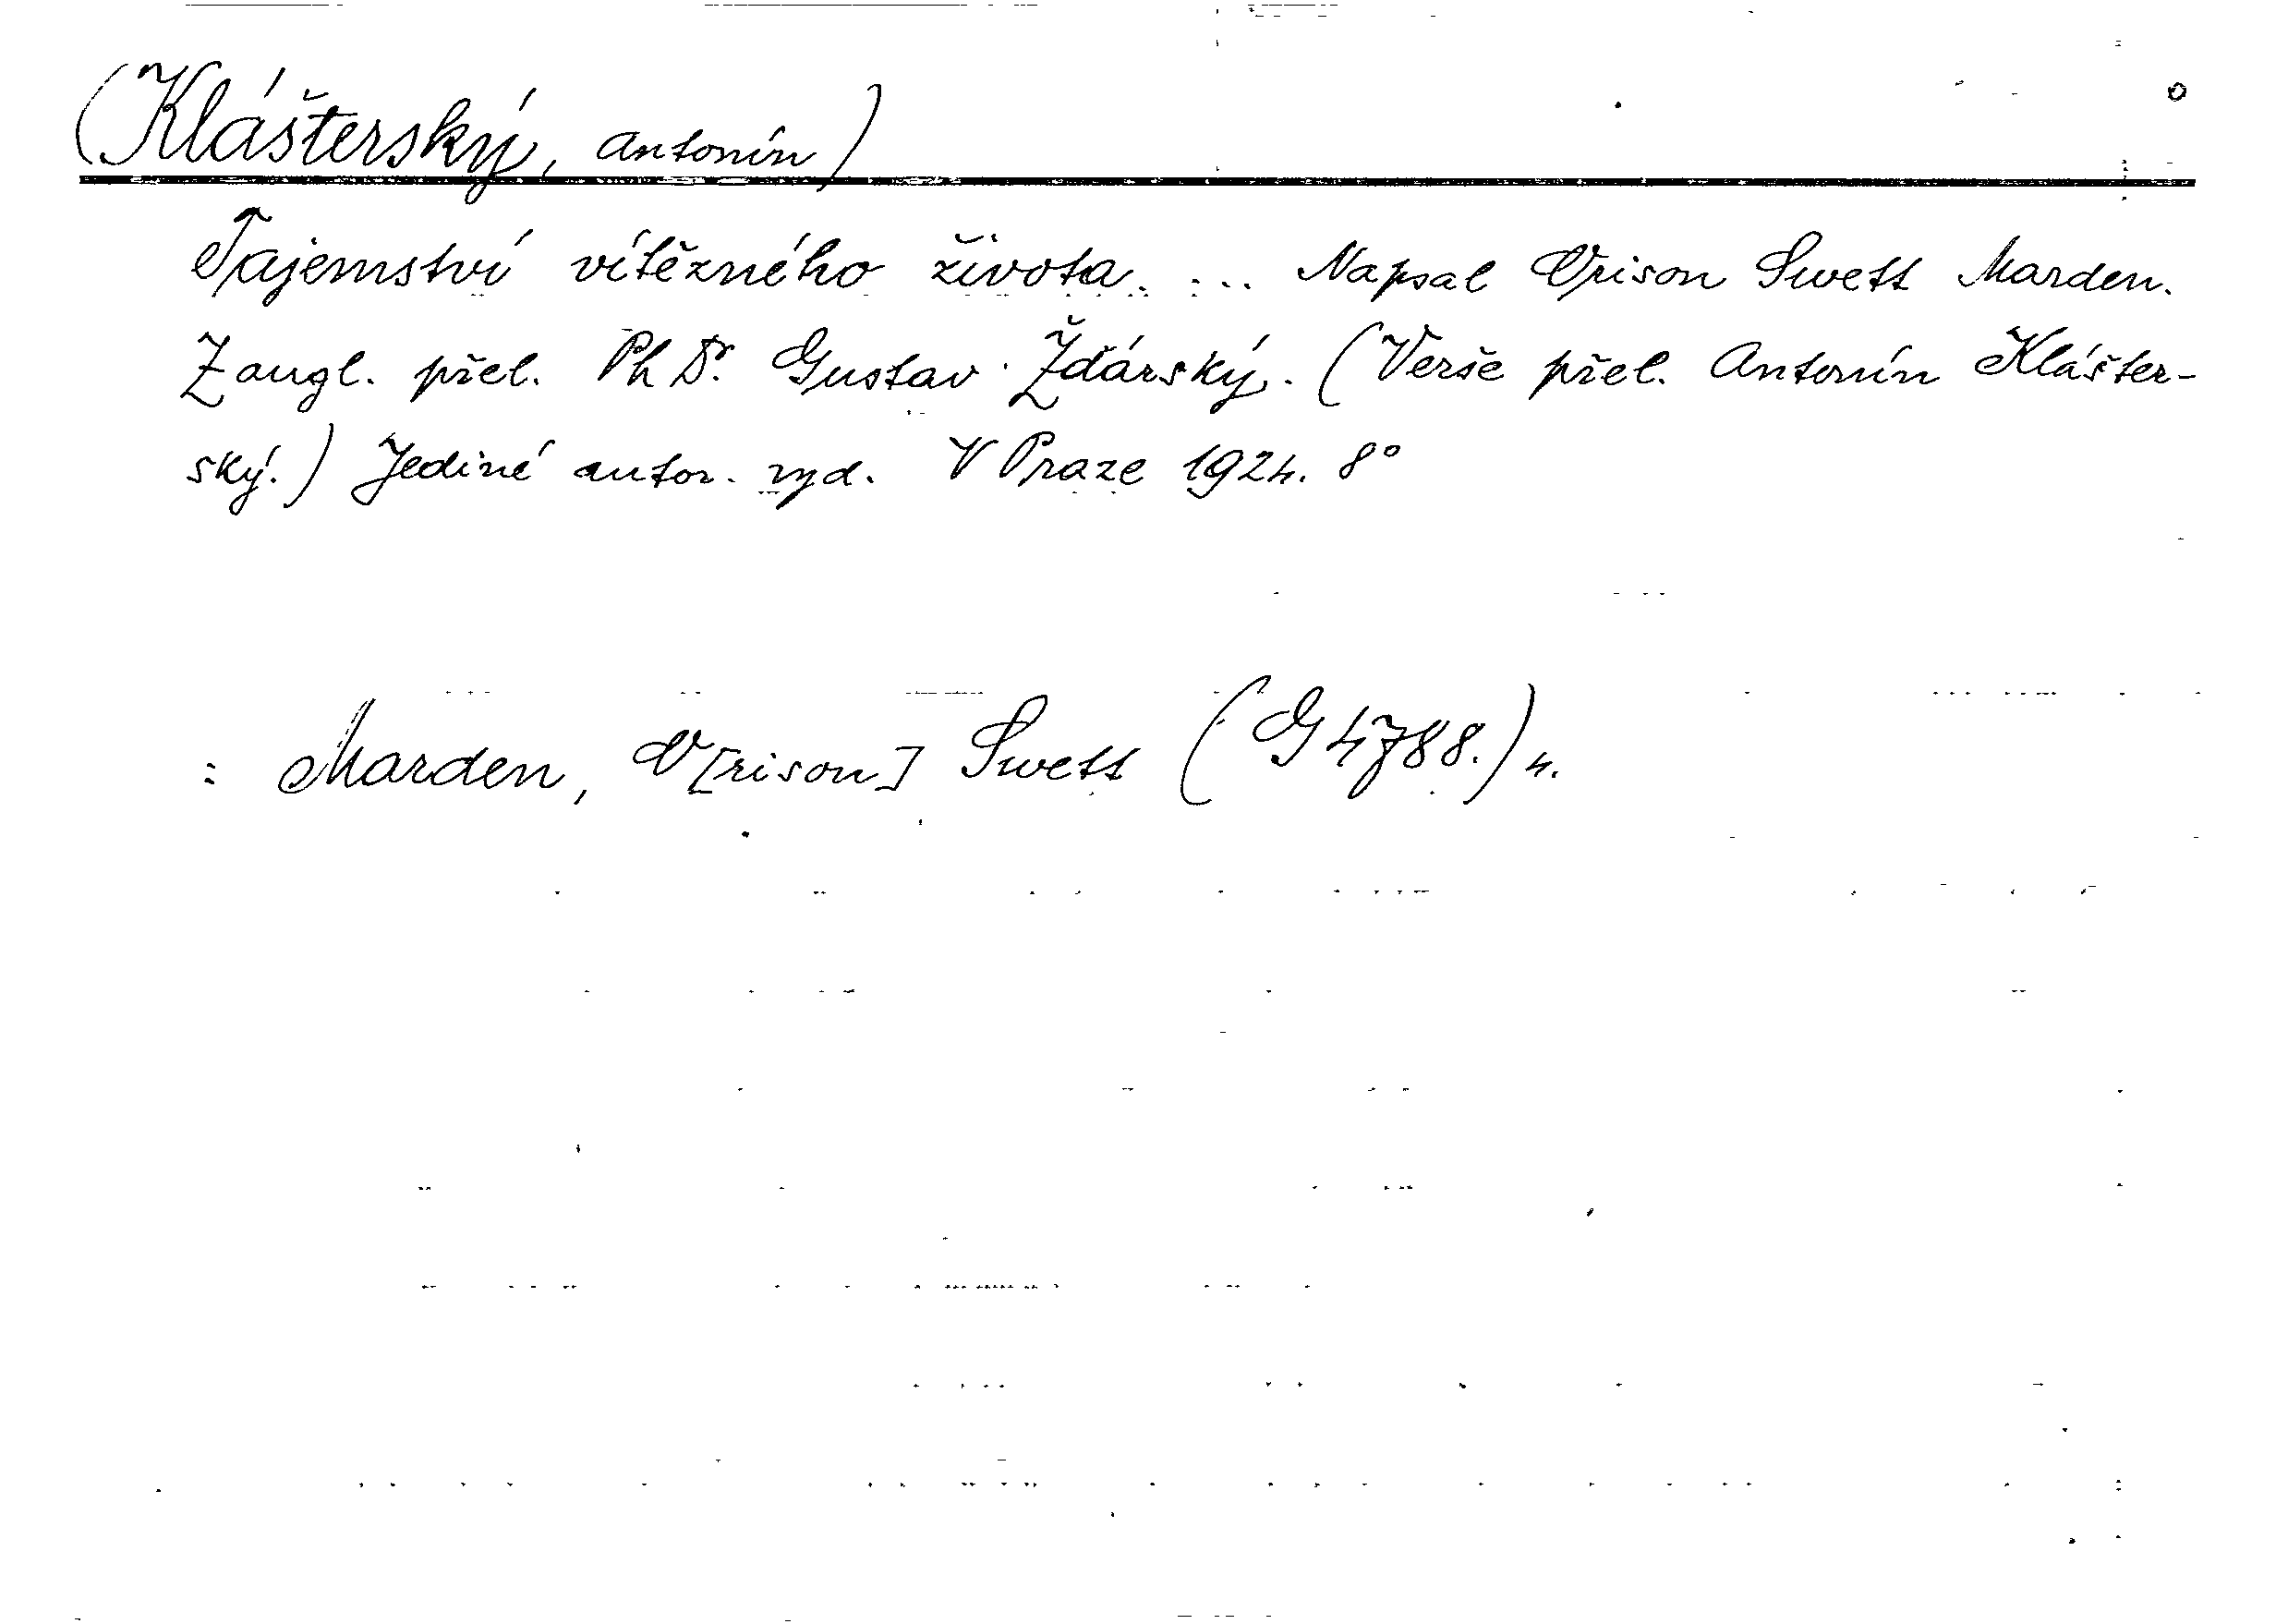 (Klášterský, Antonín)
Tajemství vítězného života. ... Napsal Orison Swett Marden.
Z angl. přel. PhDr. Gustav Žďárský. (Verše přel. Antonín Klášter-
ský.) Jediné autor. vyd. V Praze 1924. 8°
: Marden, O[rison] Swett (G 4788.) 4.